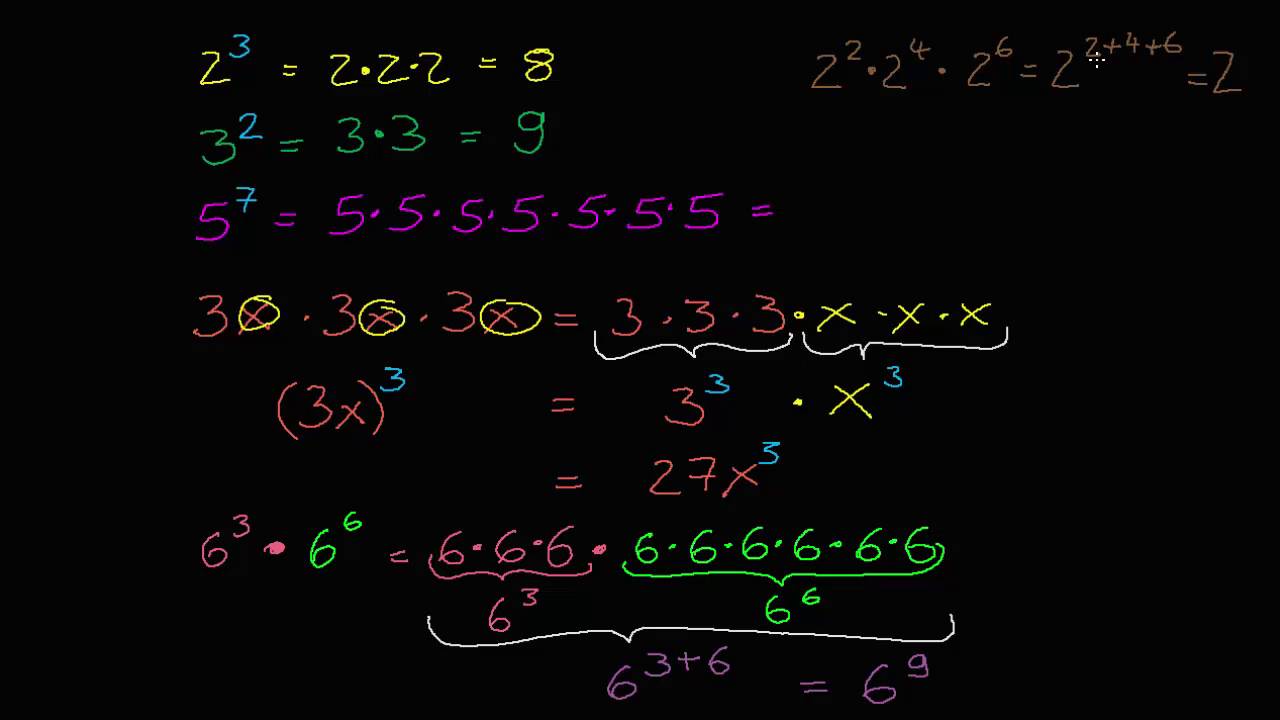 2³ = 2·2·2 = 8
2²·2⁴·2⁶ = 2²⁺⁴⁺⁶ = 2
3² = 3·3 = 9
5⁷ = 5·5·5·5·5·5·5 =
3x · 3x · 3x = 3·3·3·x·x·x
(3x)³ = 3³ · x³
= 27x³
6³ · 6⁶ = 6·6·6·6·6·6·6·6·6
6³ 6⁶
6³⁺⁶ = 6⁹